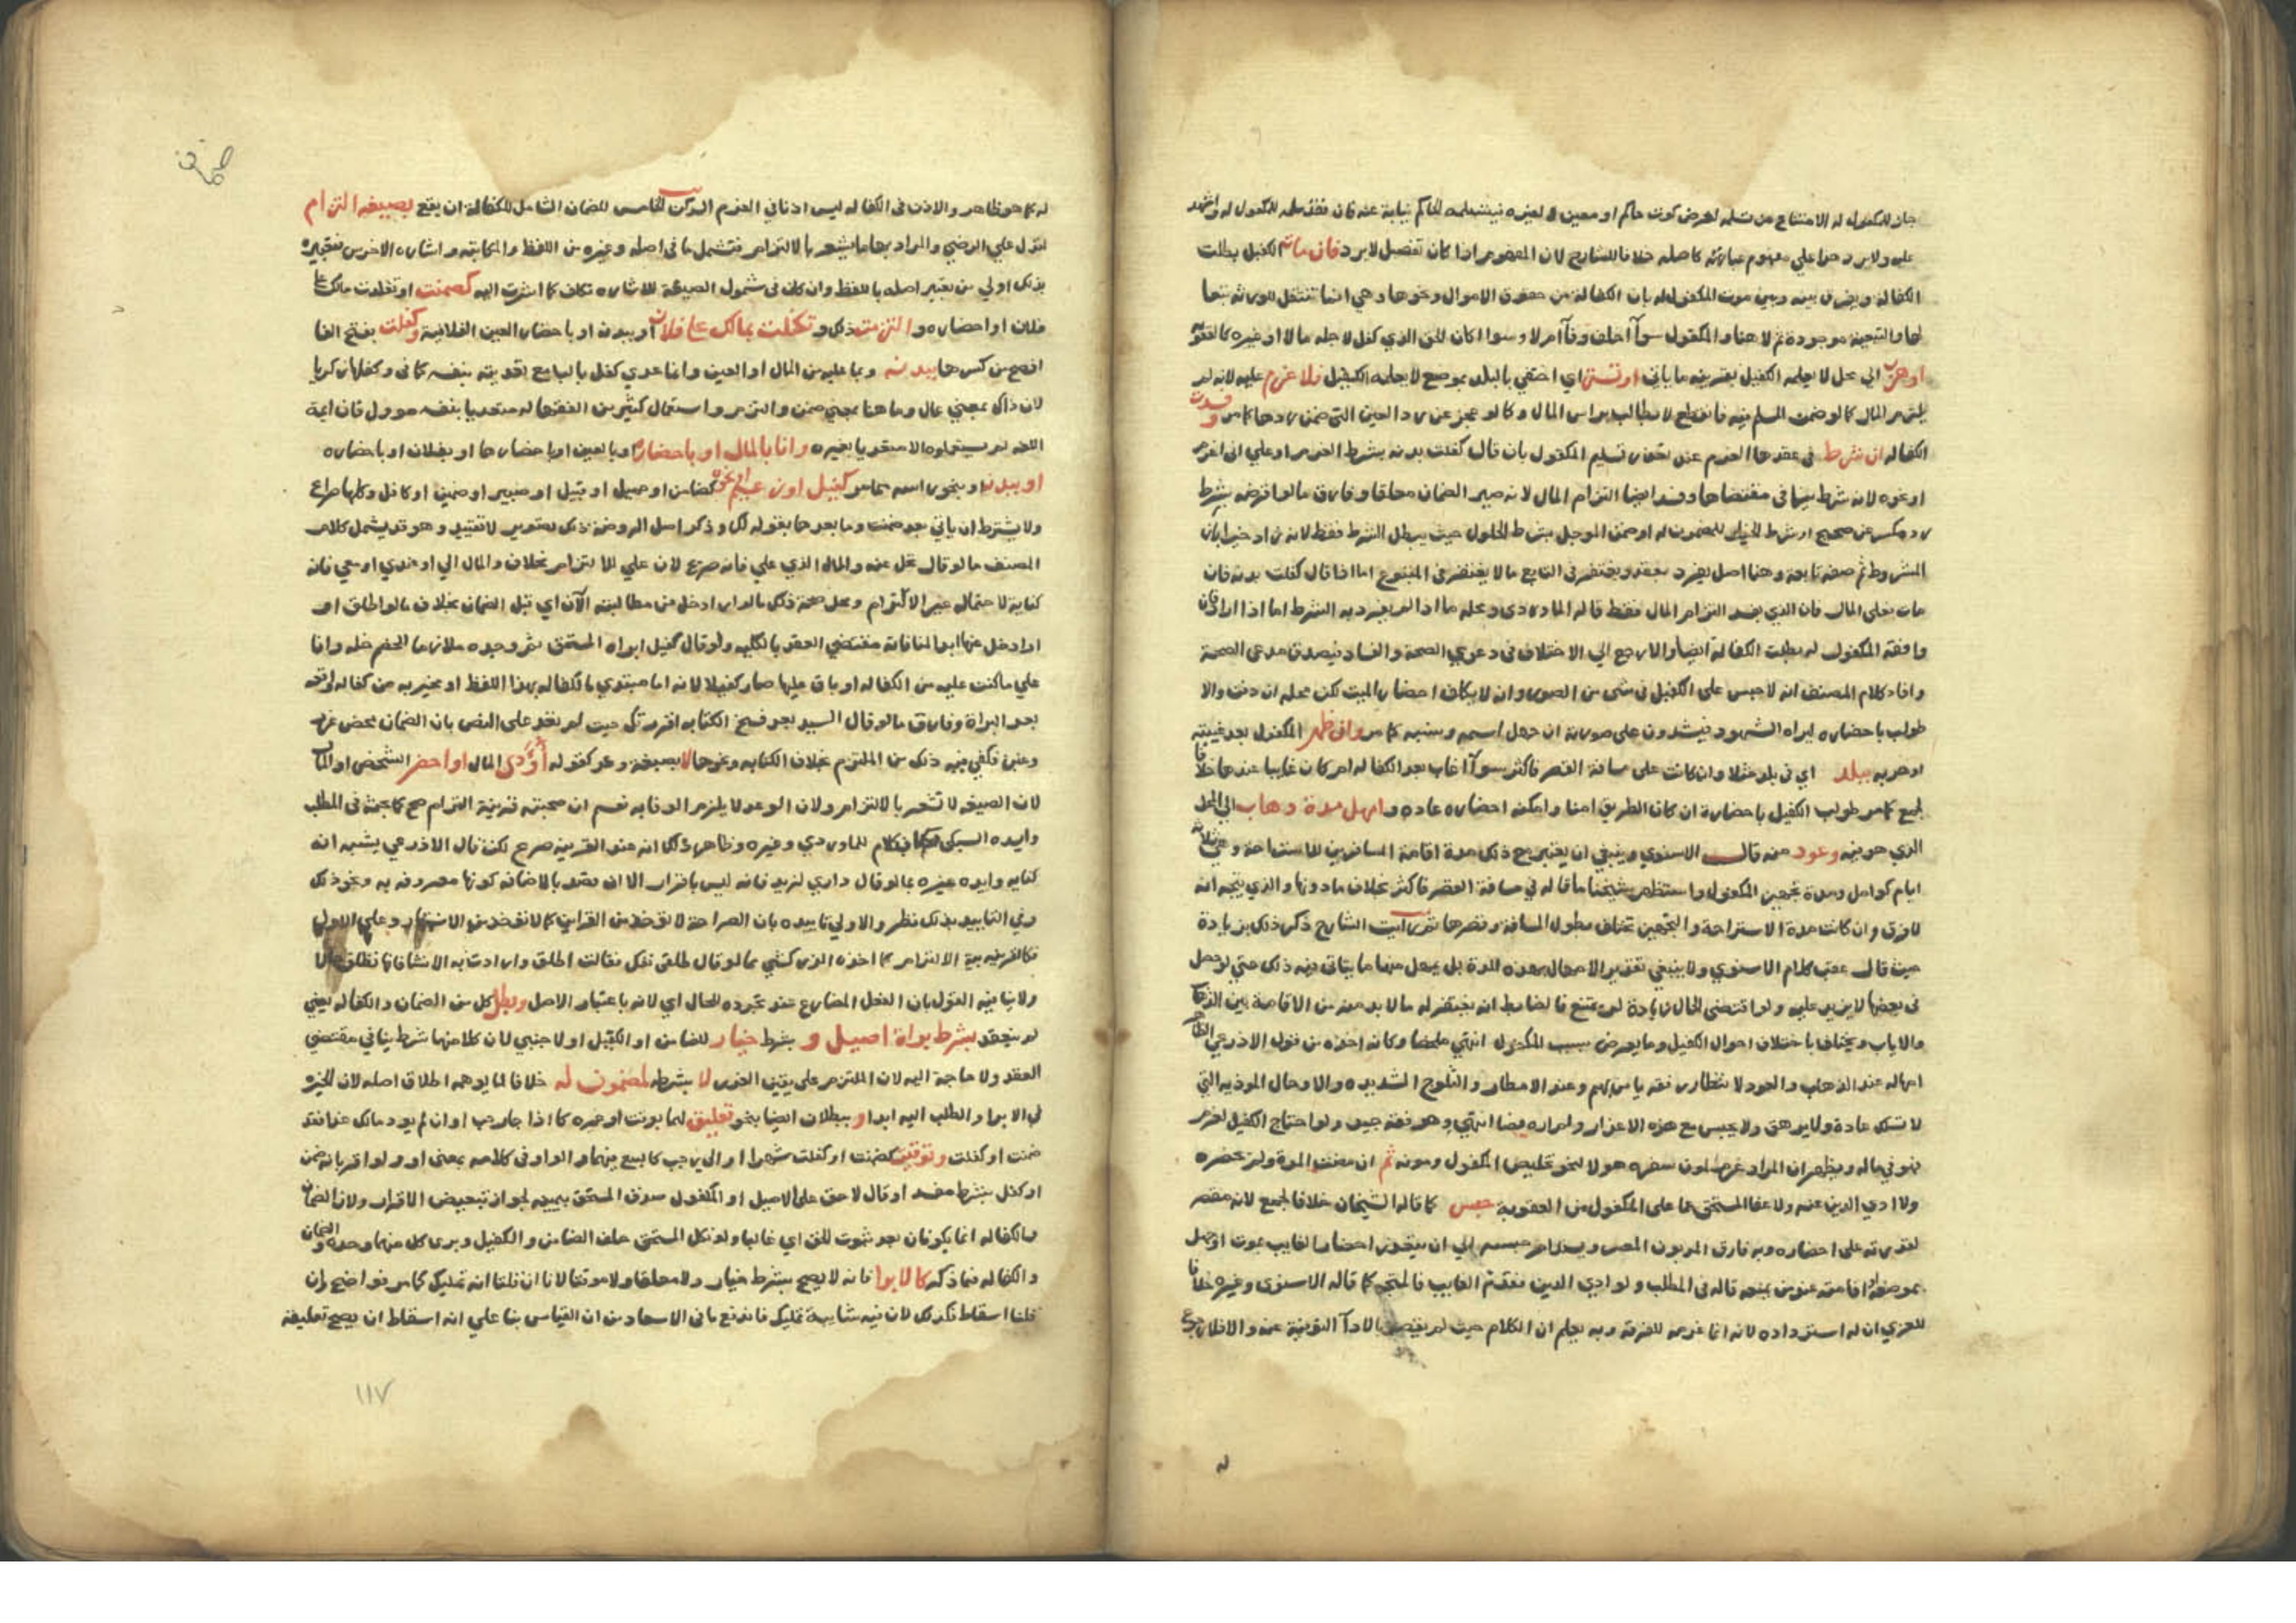 جاز للمكفول له الامتناع من تسلمه لغرض كون حاكم او معين او لغيره فيتسلمه الحاكم نيابة عنه فان فقد سلمه للمكفول له واشهد
عليه ولا يرد هذا علي مفهوم عبارته كاصله خلافا للشارح لان المفهوم اذا كان تفصيل لا يرد فان مات الكفيل بطلت
الكفالة ويفرق بينه وبين موت المكفول له بان الكفالة من حقوق الاموال ونحوها وهي انما تنتقل للورثة تبعا
لها والتبعية موجودة ثم لا هنا والمكفول سوآ اخلف وفآ ام لا وسوا اكان الحق الذي كفل لاجله مالا او غيره كالعقوبة
او هرب الي محل لا يعلمه الكفيل بقرينة ما ياتي او تستر اي اختفي بالبلد بموضع لا يعلمه الكفيل فلا غرم عليه لانه لم
يلتزم المال كما لو ضمن المسلم فيه فانقطع لا يطالب براس المال وكما لو عجز عن رد العين التي ضمن ردها كما مر وفسدت
الكفالة ان شرط في عقدها الغرم عند تعذر تسليم المكفول بان قال كفلت بدنه بشرط الغرم او علي اني اغرم
او نحوه لانه شرط ينافي مقتضاها وفسد ايضا التزام المال لانه صير الضمان معلقا وفارق ما لو اقرضه بشرط
رد مكسر عن صحيح او شرط الخيار للمضمون له او ضمن الموجل بشرط الحلول حيث يبطل الشرط فقط لانه زاد خيرا بان
المشروط ثم صفة تابعة وهنا اصل يفرد بعقد ويغتفر في التابع ما لا يغتفر في المتبوع اما اذا قال كفلت بدنه فان
مات فعلي المال فان الذي يفسد التزام المال فقط قاله الماوردي ومحله ما اذا لم يرد به الشرط اما اذا اراده فان
وافقه المكفول له بطلت الكفالة ايضا والا رجع الي الاختلاف في دعوي الصحة والفساد فيصدق مدعي الصحة
وافاد كلام المصنف انه لا حبس علي الكفيل في شي من الصور وان لا يكلف احضار الميت لكن محله ان دفن والا
طولب باحضاره ليراه الشهود فيشهدون علي صورته ان جهل اسمه ونسبه كما مر وان ظهر المكفول بعد غيبته
او هربه ببلد اي في بلد مثلا وان كانت علي مسافة القصر فاكثر سوآ اغاب بعد الكفالة ام كان غايبا عندها خلافا
لجمع كما مر طولب الكفيل باحضاره ان كان الطريق امنا وامكنه احضاره عادة وامهل مدة ذهاب الي المحل
الذي هو فيه وعود منه قال الاسنوي وينبغي ان يعتبر مع ذلك مدة اقامة المسافرين للاستراحة وهي ثلاثة
ايام كوامل ومدة تجهيز المكفول واستظهر شيخنا ما قاله في مسافة القصر فاكثر بخلاف ما دونها والذي يتجه انه
لا فرق وان كانت مدة الاستراحة والتجهيز تختلف بطول المسافة وقصرها ثم رايت الشارح ذكر ذلك بزيادة
حيث قال عقب كلام الاسنوي ولا ينبغي تقدير الامهال بهذه المدة بل يمهل منها ما يتاتي فيه ذلك حتي لو حصل
في بعضها لا يزيد عليه ولو اقتضي الحال زيادة لم يمتنع فالضابط انه يغتفر له ما لا بد منه من الاقامة بين الذهاب
والاياب ويختلف باختلاف احوال الكفيل وما يعرض بسبب المكفول انتهي ملخصا وكانه اخذه من قول الاذرعي الظاهر
امهاله عند الذهاب والعود لانتظار رفقة يامن بهم وعند الامطار والثلوج الشديدة والاوحال الموذية التي
لا تسلك عادة ولا يرهق ولا يحبس مع هذه الاعذار ولم اره نصا انتهي وهو فقه جيد ولو احتاج الكفيل لغرم
فهو في ماله ويظهر ان المراد غرم لمون سفره هو لا لنحو تخليص المكفول ومونه ثم ان مضت المدة ولم يحضره
ولا ادي الدين عنه ولا عفا المستحق عما علي المكفول من العقوبة حبس كما قاله الشيخان خلافا لجمع لانه مقصر
لقدرته علي احضاره وبه فارق المديون المعسر ويستدام حبسه الي ان يتعذر احضار الغايب بموت او جهل
بموضعه او اقامته عند من يمنعه قاله في المطلب ولو ادي الدين فقدم الغايب فالمتجه كما قاله الاسنوي وغيره خلافا
للغزي ان له استرداده لانه انما غرمه للفرقة وبه يعلم ان الكلام حيث لم يقصد بالادآ التوفية عنه والا فلا رجوع
له
له كما هو ظاهر والاذن في الكفالة ليس اذنا في الغرم الركن الخامس للضمان الشامل للكفالة ان يقع بصيغة التزام
لتدل علي الرضي والمراد بها ما يشعر بالالتزام فتشمل ما في اصله وغيره من اللفظ والكتابة واشارة الاخرس فتعبيره
بذلك اولي من تعبير اصله باللفظ وان كان في شمول الصيغة للاشارة تكلف كما اشرت اليه كضمنت او تقلدت مالك علي
فلان او احضاره والتزمت ذلك وتكفلت بمالك علي فلان او ببدنه او باحضار العين الفلانية وكفلت بفتح الفا
افصح من كسرها ببدنه وبما عليه من المال او العين وانما عدي كفل بالبا مع تعديته بنفسه كما في وكفلها زكريا
لان ذاك بمعني عال وما هنا بمعني ضمن والتزم واستعمال كثير من الفقها له متعديا بنفسه مؤول فان ائمة
اللغة لم يستعملوه الا متعديا بغيره وانا بالمال او باحضاره او بالعين او باحضارها او بفلان او باحضاره
او ببدنه او بنحو راسه مما مر كفيل او زعيم او نحوه كضامن او حميل او قبيل او صبير او ضمين او كافل وكلها صرايح
ولا يشترط ان ياتي بعد ضمنت وما بعدها بقوله لك وذكر اصل الروضة ذلك تصوير لا تقييد وهو قد يشمل كلام
المصنف ما لو قال خل عنه والمال الذي علي فانه صريح لان علي للالتزام بخلاف والمال الي او عندي او معي فانه
كناية لاحتماله غير الالتزام ومحل صحة ذلك ما لو اراد ادخل من مطالبته الآن اي قبل الضمان بخلاف ما لو اطلق او
اراد خل عنه ابدا لمنافاته مقتضي العقد بالكلية ولو قال كفيل ابراه المستحق ثم وجده ملازما لخصم خله وانا
علي ما كنت عليه من الكفالة او باق عليها صار كفيلا لانه اما مبتدي بالكفالة بهذا اللفظ او مخبر به من كفالة واقعة
بعد البراة وفارق ما لو قال السيد بعد فسخ الكتابة اقررتك حيث لم تعد علي النص بان الضمان محض غرر
وغبن فكفي فيه ذلك من الملتزم بخلاف الكتابة ونحوها لا بصيغة وعد كقوله أؤدي المال او احضر الشخص او المال
لان الصيغة لا تشعر بالالتزام ولان الوعد لا يلزم الوفا به نعم ان صحبته قرينة التزام صح كما بحثه في المطلب
وايده السبكي بكلام للماوردي وغيره وظاهر ذلك انه عند القرينة صريح لكن قال الاذرعي يشبه انه
كناية وايده غيره بما لو قال داري لزيد فانه ليس باقرار الا ان قصد بالاضافة كونها معروفة به ونحو ذلك
وفي التاييد بذلك نظر والاولي تاييده بان الصراحة لا تؤخذ من القراين كما لا تؤخذ من الاشتهار وعلي الاول
فكالقرينة نية الالتزام كما اخذه الزركشي مما لو قال طلقي نفسك فقالت اطلق وارادت به الانشا فانها تطلق حالا
ولا ينافيه القول بان الفعل المضارع عند تجرده للحال اي لانه باعتبار الاصل وبطل كل من الضمان والكفالة يعني
لم ينعقد بشرط براة اصيل و بشرط خيار للضامن او الكفيل او لاجنبي لان كلا منهما شرط ينافي مقتضي
العقد ولا حاجة اليه لان الملتزم علي يقين الغرر لا بشرطه لمضمون له خلافا لما يوهمه اطلاق اصله لان الخيرة
في الابرا والطلب اليه ابدا وببطلان ايضا بنحو تعليق لهما بوقت او غيره كاذا جا رجب او ان لم يود مالك غدا فقد
ضمنت او كفلت وتوقيت كضمنت او كفلت شهرا او الي رجب كالبيع فيهما والواو في كلامه بمعني او ولو اقر بانه ضمن
او كفل بشرط مفسد او قال لا حق علي الاصيل او المكفول صدق المستحق بيمينه لجواز تبعيض الاقرار ولان الضمان
والكفالة انما يكونان بعد ثبوت الحق اي غالبا ولو نكل المستحق حلف الضامن والكفيل وبري كل منهما وحده والضمان
والكفالة فيما ذكر كالابرا فانه لا يصح بشرط خيار ولا معلقا ولا موقتا لانا ان قلنا انه تمليك كما مر فواضح وان
قلنا اسقاط فكذلك لان فيه شايبة تمليك فاندفع ما في الاسعاد من ان القياس بنا علي انه اسقاط ان يصح تعليقه
١١٧